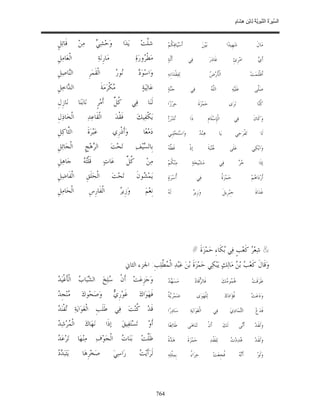 السيرة النبوية لابن هشام
مَالَ شَهِيدًا بَيْنَ أَسْيَافِكُمْ شَلَّتْ يَدَا وَحْشِيٍّ مِنْ قَاتِلِ
أَيَّ امْرِئٍ غَادَرَ فِي أَلَّةٍ مَطْرُورَةٍ مَارِنَةِ الْعَامِلِ
أَظْلَمَتْ الْأَرْضُ لِفِقْدَانِهِ وَاسْوَدَّ نُورُ الْقَمَرِ النَّاصِلِ
صَلَّى عَلَيْهِ اللَّهُ فِي جَنَّةٍ عَالِيَةٍ مُكْرَمَةِ الدَّاخِلِ
كُنَّا نَرَى حَمْزَةَ حِرْزًا لَنَا فِي كُلِّ أَمْرٍ نَابَنَا نَازِلِ
وَكَانَ فِي الْإِسْلَامِ ذَا تُدْرَأٍ يَكْفِيكَ فَقْدَ الْقَاعِدِ الْخَاذِلِ
لَا تَفْرَحِي يَا هِنْدُ وَاسْتَحْلِبِي دَمْعًا وَأَذْرِي عَبْرَةَ الثَّاكِلِ
وَابْكِي عَلَى عُتْبَةَ إذْ قَطَّهُ بِالسَّيْفِ تَحْتَ الرَّهْجِ الْجَائِلِ
إِذَا خَرَّ فِي مَشْيَخَةٍ مِنْكُمْ مِنْ كُلِّ عَاتٍ قَلْبُهُ جَاهِلِ
أَرْدَاهُمْ حَمْزَةُ فِي أُسْرَةٍ يَمْشُونَ تَحْتَ الْحَلَقِ الْفَاضِلِ
غَدَاةَ جِبْرِيلُ وَزِيرٌ لَهُ نِعْمَ وَزِيرُ الْفَارِسِ الْحَامِلِ
شِعْرُ كَعْبٍ فِي بُكَاءِ حَمْزَةَ
وَقَالَ كَعْبُ بْنُ مَالِكٍ يَبْكِي حَمْزَةَ بْنَ عَبْدِ الْمُطَّلِبِ: الجزء الثاني
طَرَقَتْ هُمُومُكَ فَالرُّقَادُ مُسَهَّدُ وَجَزِعْتَ أَنْ سُلِخَ الشَّبَابُ الْأَغْيَدُ
وَدَعَتْ فُؤَادَكَ لِلْهَوَى ضَمْرِيَّةٌ فَهَوَاكَ غَوْرِيٌّ وَصَحْوُكَ مُنْجِدُ
فَدَعْ التَّمَادِيَ فِي الْغَوَايَةِ سَادِرًا قَدْ كُنْتَ فِي طَلَبِ الْغَوَايَةِ تُفْنَدُ
وَلَقَدْ أَنَى لَكَ أَنْ تَنَاهَى طَائِعًا أَوْ تَسْتَفِيقَ إذَا نَهَاكَ الْمُرْشِدُ
وَلَقَدْ هُدِدْتُ لِفَقْدِ حَمْزَةَ هَدَّةً ظَلَّتْ بَنَاتُ الْجَوْفِ مِنْهَا تَرْعَدُ
وَلَوْ أَنَّهُ فُجِعَتْ حِرَاءُ بِمِثْلِهِ لَرَأَيْتُ رَاسِيَ صَخْرِهَا يَتَبَدَّدُ
764